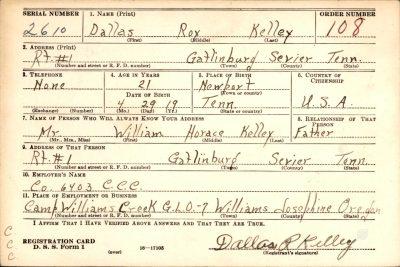 SERIAL NUMBER 1. NAME (Print) ORDER NUMBER
2610 Dallas Roy Kelley 108
(First) (Middle) (Last)
2. ADDRESS (Print)
Rt. #1 Gatlinburg Sevier Tenn.
(Number and street or R. F. D. number) (Town) (County) (State)
3. TELEPHONE 4. AGE IN YEARS 5. PLACE OF BIRTH 6. COUNTRY OF CITIZENSHIP
None 21 Newport
DATE OF BIRTH (Town or county)
4 29 19 Tenn. U.S.A.
(Exchange) (Number) (Mo.) (Day) (Yr.) (State or country)
7. NAME OF PERSON WHO WILL ALWAYS KNOW YOUR ADDRESS 8. RELATIONSHIP OF THAT PERSON
Mr. William Horace Kelley Father
(Mr., Mrs., Miss) (First) (Middle) (Last)
9. ADDRESS OF THAT PERSON
Rt. #1 Gatlinburg Sevier Tenn.
(Number and street or R. F. D. number) (Town) (County) (State)
10. EMPLOYER'S NAME
Co. 6403 C.C.C.
11. PLACE OF EMPLOYMENT OR BUSINESS
Camp Williams Creek G.L.O.-7 Williams Josephine Oregon
(Number and street or R. F. D. number) (Town) (County) (State)
I AFFIRM THAT I HAVE VERIFIED ABOVE ANSWERS AND THAT THEY ARE TRUE.
C
C
C
REGISTRATION CARD
D. S. S. Form 1 16—17105 Dallas R Kelley
(over) (Registrant's signature)